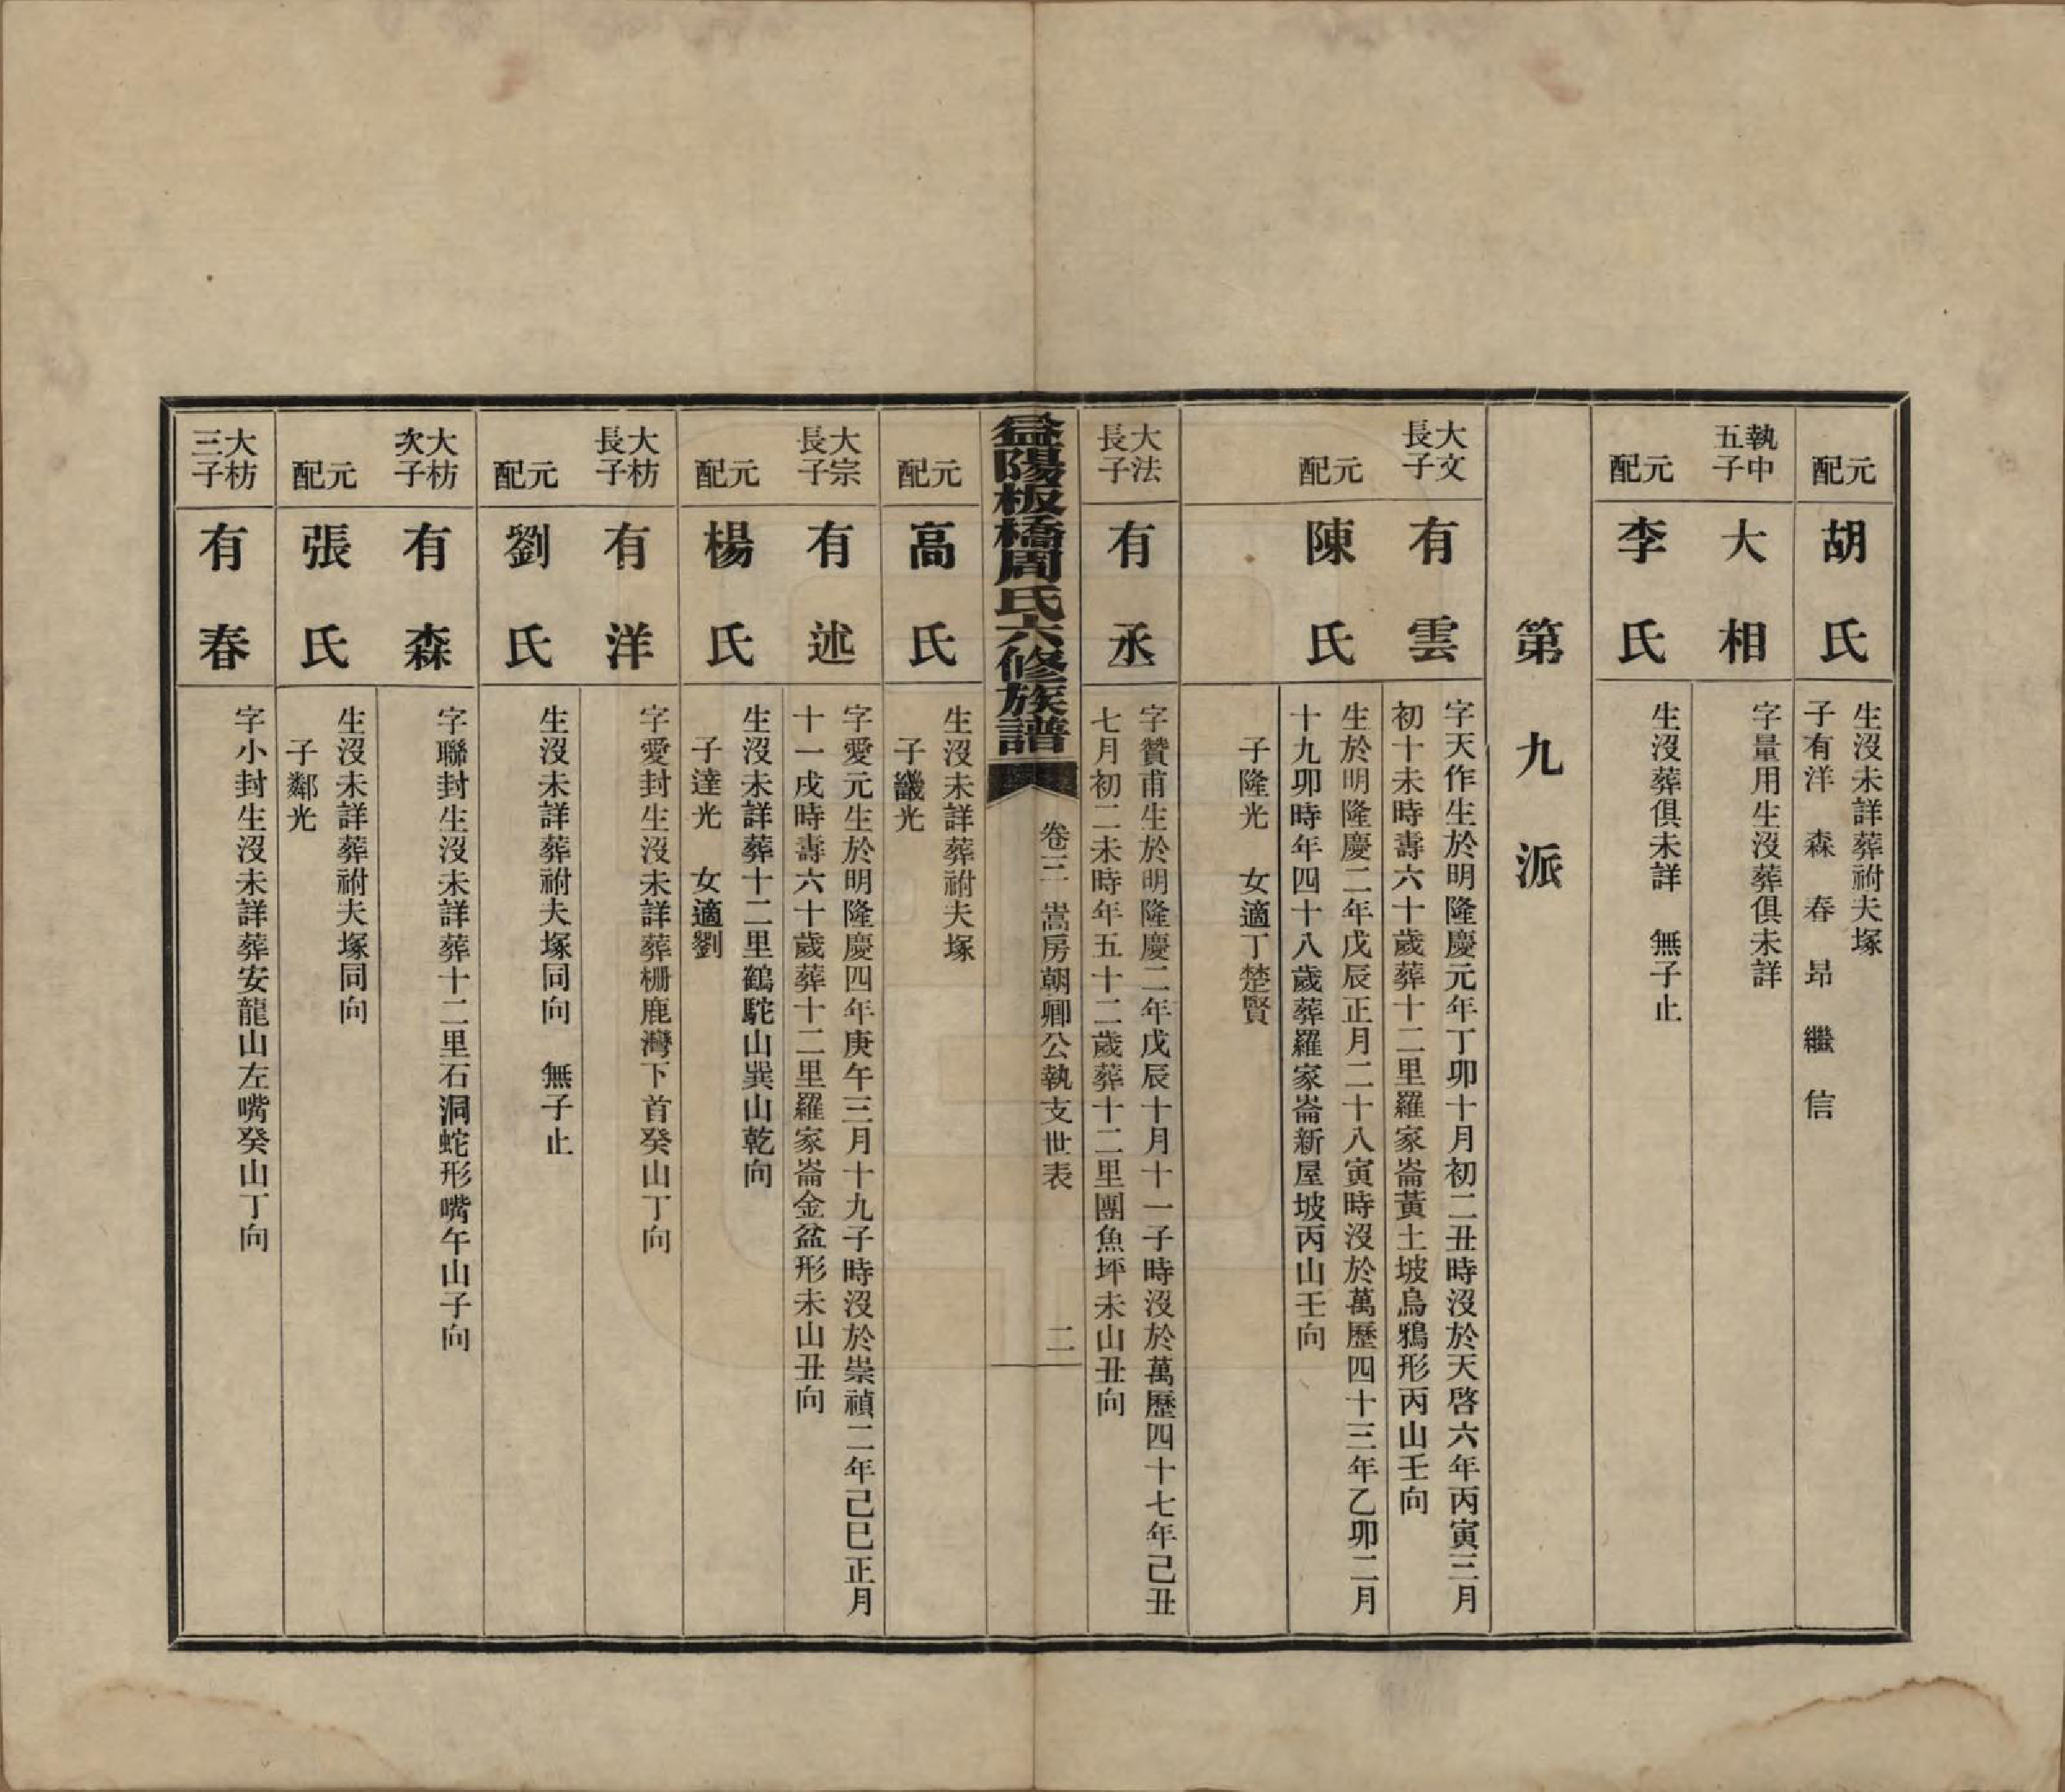 元配
胡氏
生沒未詳葬祔夫塚
子有洋　森　春　昂　繼　信
執中五子
大相
字量用生沒葬俱未詳
元配
李氏
生沒葬俱未詳　無子止
第九派
大文長子
有雲
字天作生於明隆慶元年丁卯十月初二丑時沒於天啓六年丙寅三月
初十未時壽六十歲葬十二里羅家崙黃土坡烏鴉形丙山壬向
元配
陳氏
生於明隆慶二年戊辰正月二十八寅時沒於萬歷四十三年乙卯二月
十九卯時年四十八歲葬羅家崙新屋坡丙山壬向
子隆光　女適丁楚賢
大法長子
有丞
字贊甫生於明隆慶二年戊辰十月十一子時沒於萬歷四十七年己丑
七月初二未時年五十二歲葬十二里團魚坪未山丑向
益陽板橋周氏六修族譜
卷三　嵩房朝卿公執支世表
二
元配
高氏
生沒未詳葬祔夫塚
子光
大宗長子
有述
字愛元生於明隆慶四年庚午三月十九子時沒於崇禎二年己巳正月
十一戌時壽六十歲葬十二里羅家崙金盆形未山丑向
元配
楊氏
生沒未詳葬十二里鶴駝山巽山乾向
子達光　女適劉
大枋長子
有洋
字愛封生沒未詳葬栅鹿灣下首癸山丁向
元配
劉氏
生沒未詳葬祔夫塚同向　無子止
大枋次子
有森
字聯封生沒未詳葬十二里石洞蛇形嘴午山子向
元配
張氏
生沒未詳葬祔夫塚同向
子鄰光
大枋三子
有春
字小封生沒未詳葬安龍山左嘴癸山丁向